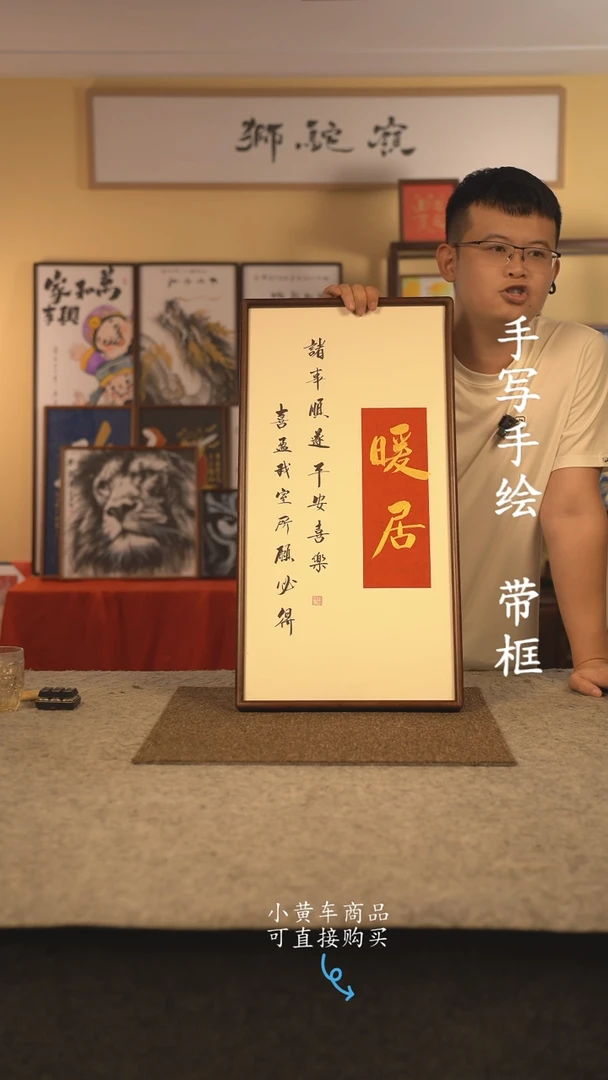 獅駝嶺
家和萬
事興
暖居
諸事順遂平安喜樂
喜盈我室所願必得
手写手绘 带框
小黄车商品
可直接购买